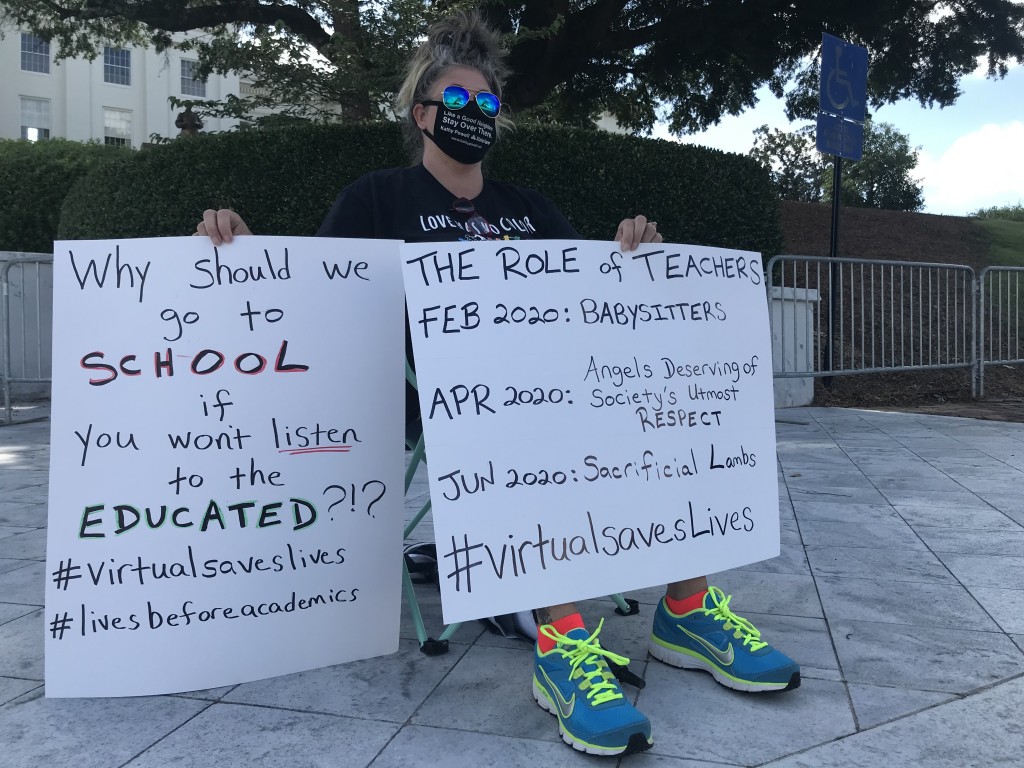 Like a Good Neighbor
Stay Over There.
Kathy Powell
LOVE
COLOR
Why should we
go to
SCHOOL
if
you won't listen
to the
EDUCATED?!?
#virtualsaveslives
#livesbeforeacademics
THE ROLE of TEACHERS
FEB 2020: BABYSITTERS
APR 2020: Angels Deserving of
Society's Utmost
RESPECT
JUN 2020: Sacrificial Lambs
#virtualsavesLives